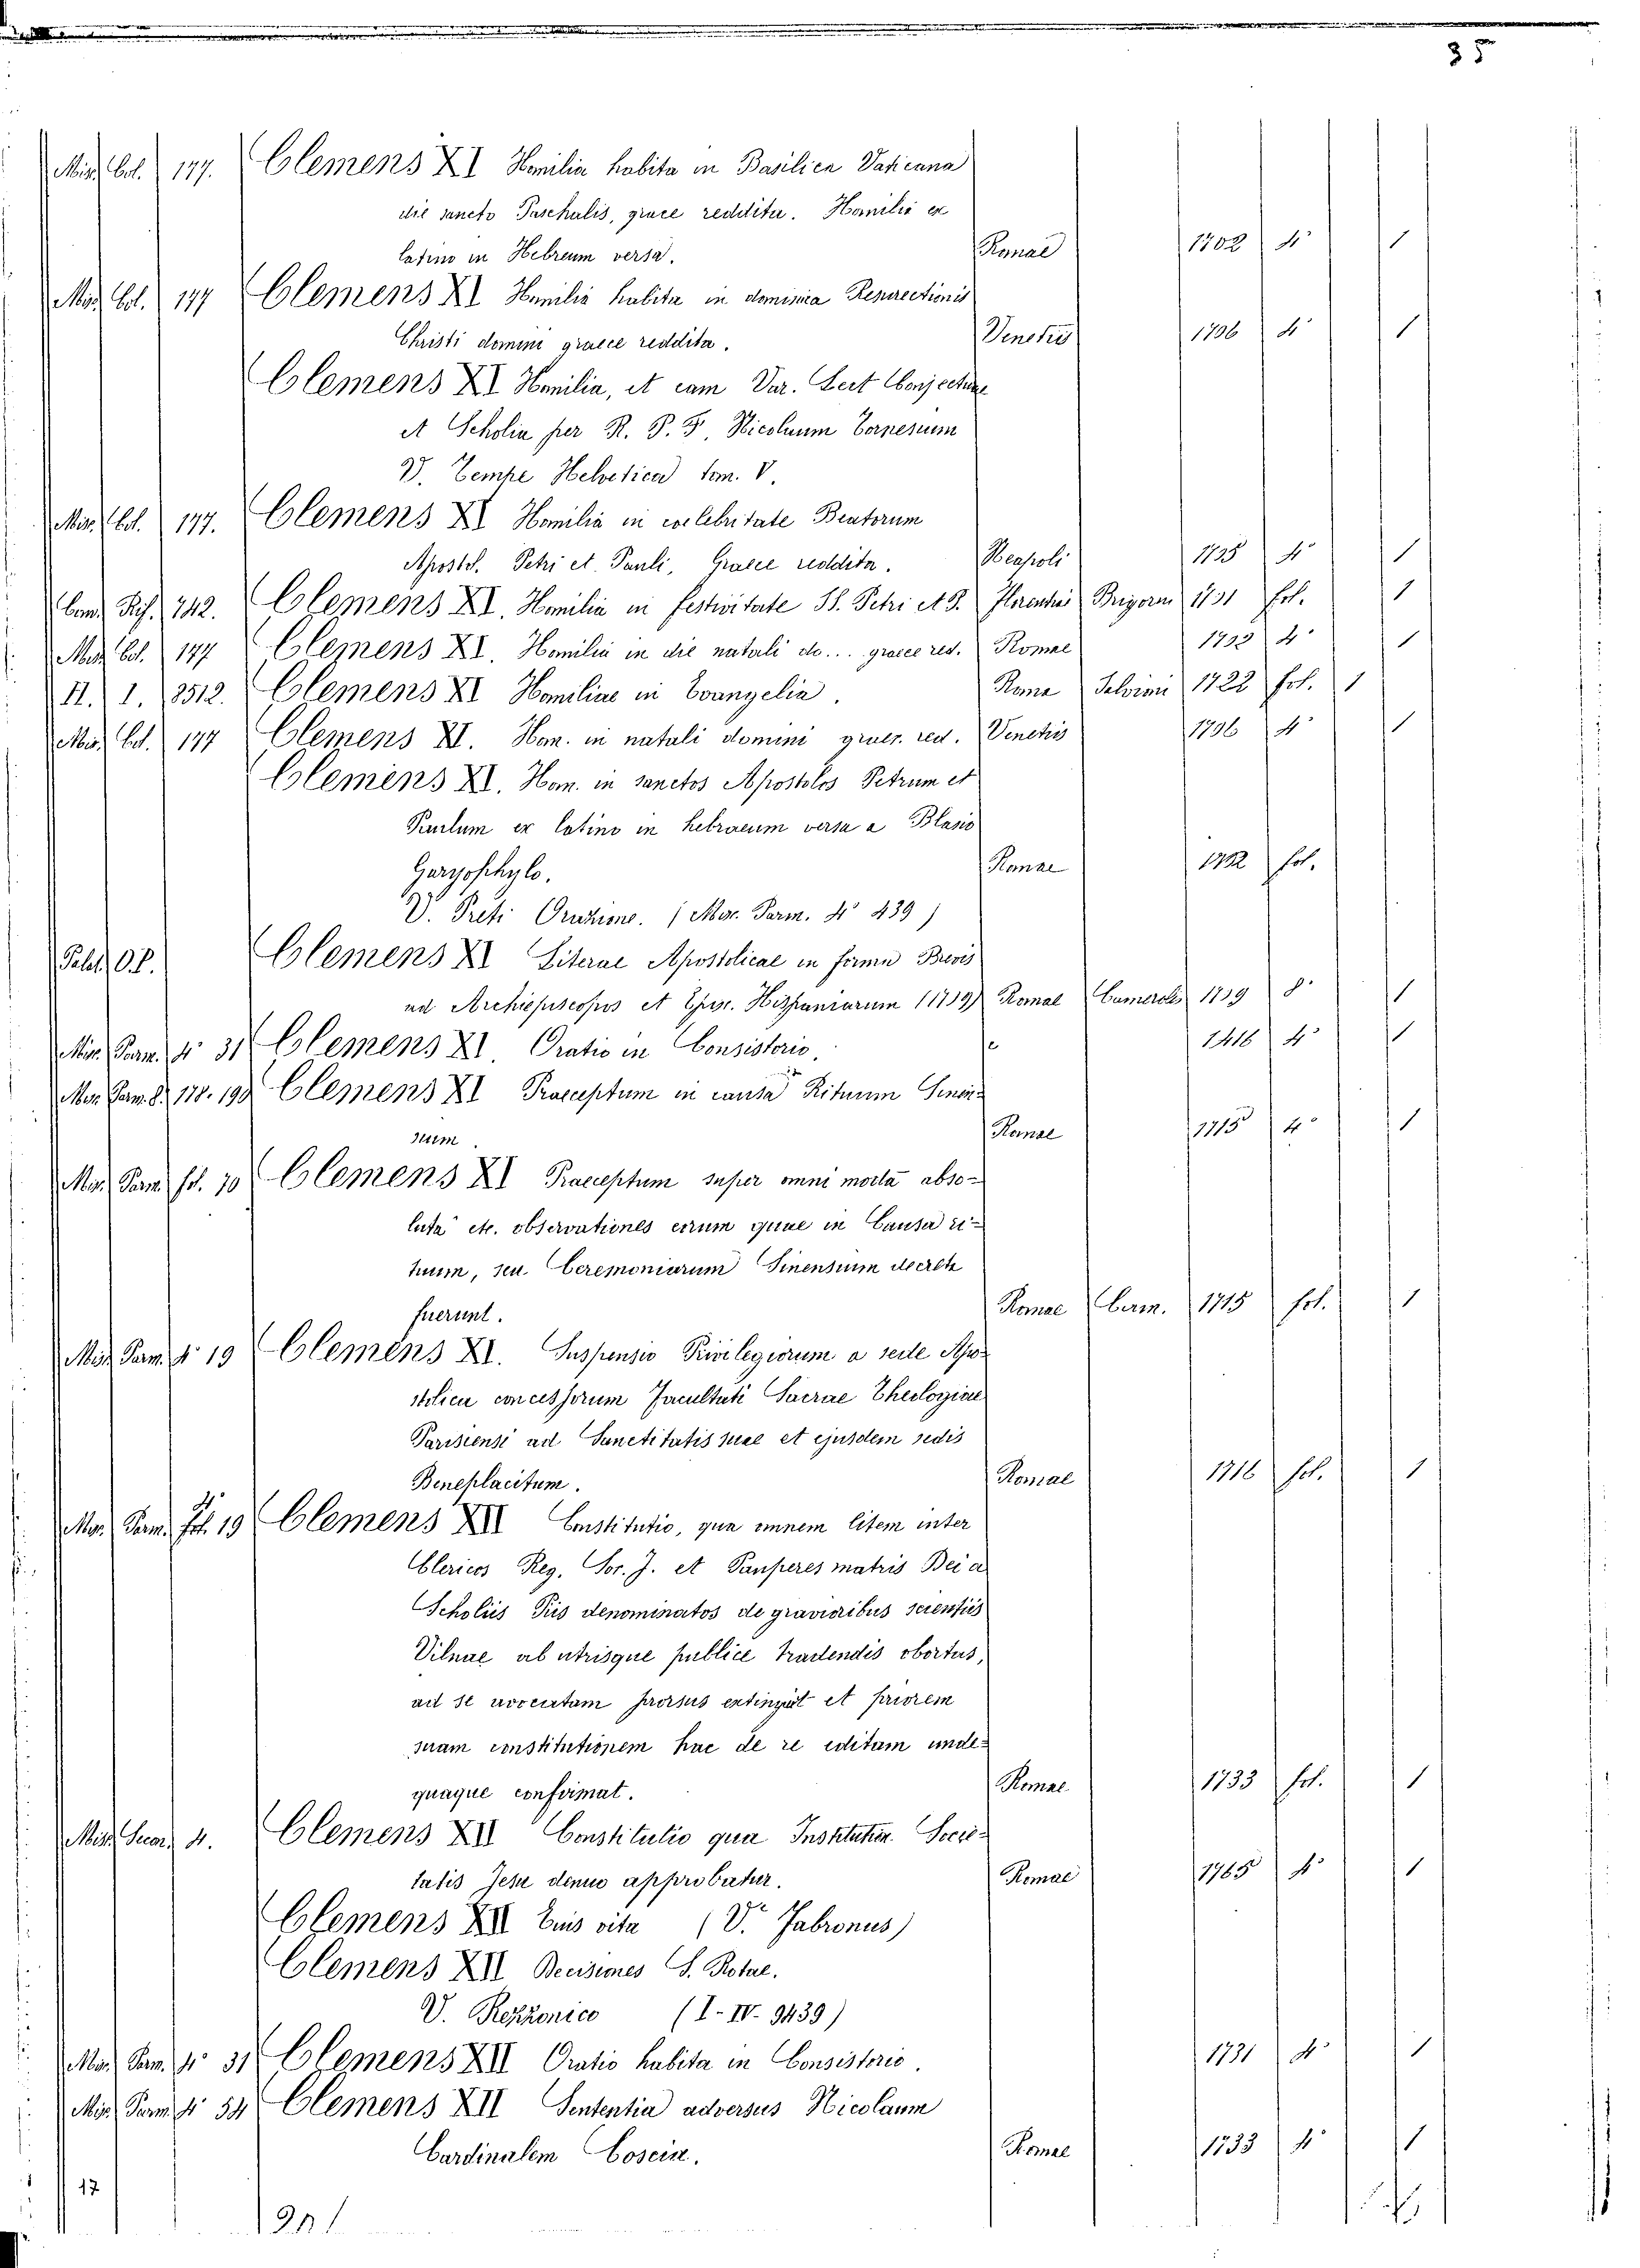 35
Misc. Col. 177. Clemens XI Homilia habita in Basilica Vaticana
die sancto Paschalis, grace reddita. Homilia ex
latino in Hebreum versa. Romae 1702 4° 1
Misc. Col. 177 Clemens XI Homilia habita in dominica Resurectionis
Christi domini graece reddita. Venetiis 1706 4° 1
Clemens XI Homilia, et eam Var. Lect Conjecturae
et Scholia per R. P. F. Nicolaum
V. Tempe Helvetica tom. V.
Misc. Col. 177. Clemens XI Homilia in celebritate Beatorum
Apostol. Petri et Pauli, Graece reddita. Neapoli 4° 1
742. Clemens XI. Homilia in festivitate SS. Petri et P. Florentiae fol. 1
Misc. Col. 177 Clemens XI. Homilia in die natali do... graece red. Romae 4° 1
II. 1. 3512. Clemens XI Homiliae in Evangelia. Roma Salvioni 1722 fol. 1
Misc. Col. 177 Clemens XI. Hom. in natali domini graec. red. Venetiis 1706 4° 1
Clemens XI. Hom. in sanctos Apostolos Petrum et
Paulum ex latino in hebraeum versa a Blasio
Garyophylo. Romae fol.
V. Preti Orazione. (Misc. Parm. 4° 439)
Palat. O.P. Clemens XI Literae Apostolicae in forma Brevis
ad Archiepiscopos et Episc. Hispaniarum (1719) Romae Camerales 1719 8° 1
Misc. Parm. 4° 31 Clemens XI Oratio in Consistorio. 4° 1
Misc. Parm. 8. 178. 199 Clemens XI Praeceptum in causa Rituum Sinen-
sium. Romae 1715 4° 1
Misc. Parm. fol. 10 Clemens XI Praeceptum super omni moda abso-
luta etc. observationes eorum quae in Causa ri-
tuum, seu Ceremoniarum Sinensium decreta
fuerunt. Romae Cam. 1715 fol. 1
Misc. Parm. 4° 19 Clemens XI. Suspensio Privilegiorum a sede Apo-
stolica concessorum Facultati Sacrae Theologiae
Parisiensi ad Sanctitatis suae et ejusdem sedis
Beneplacitum. Romae 1716 fol. 1
Misc. Parm. Fol. 19 Clemens XII Constitutio, qua omnem litem inter
Clericos Reg. Soc. J. et Pauperes matris Dei a
Scholiis Piis denominatos de gravioribus scientiis
Vilnae ab utrisque publice tradendis obortus,
ad se avocatam prorsus extinguit et priorem
suam constitutionem hac de re editam unde-
quaque confirmat. Romae 1733 fol. 1
Misc. 4. Clemens XII Constitutio qua Institutum Socie-
tatis Jesu denuo approbatur. Romae 1765 4° 1
Clemens XII Eius vita (V. Fabronus)
Clemens XII Decisiones S. Rotae.
V. Rezzonico (I - IV - 9439)
Misc. Parm. 4° 31 Clemens XII Oratio habita in Consistorio. 1731 4° 1
Misc. Parm. 4° 54 Clemens XII Sententia adversus Nicolaum
Cardinalem Coscia. Romae 1733 4° 1
17